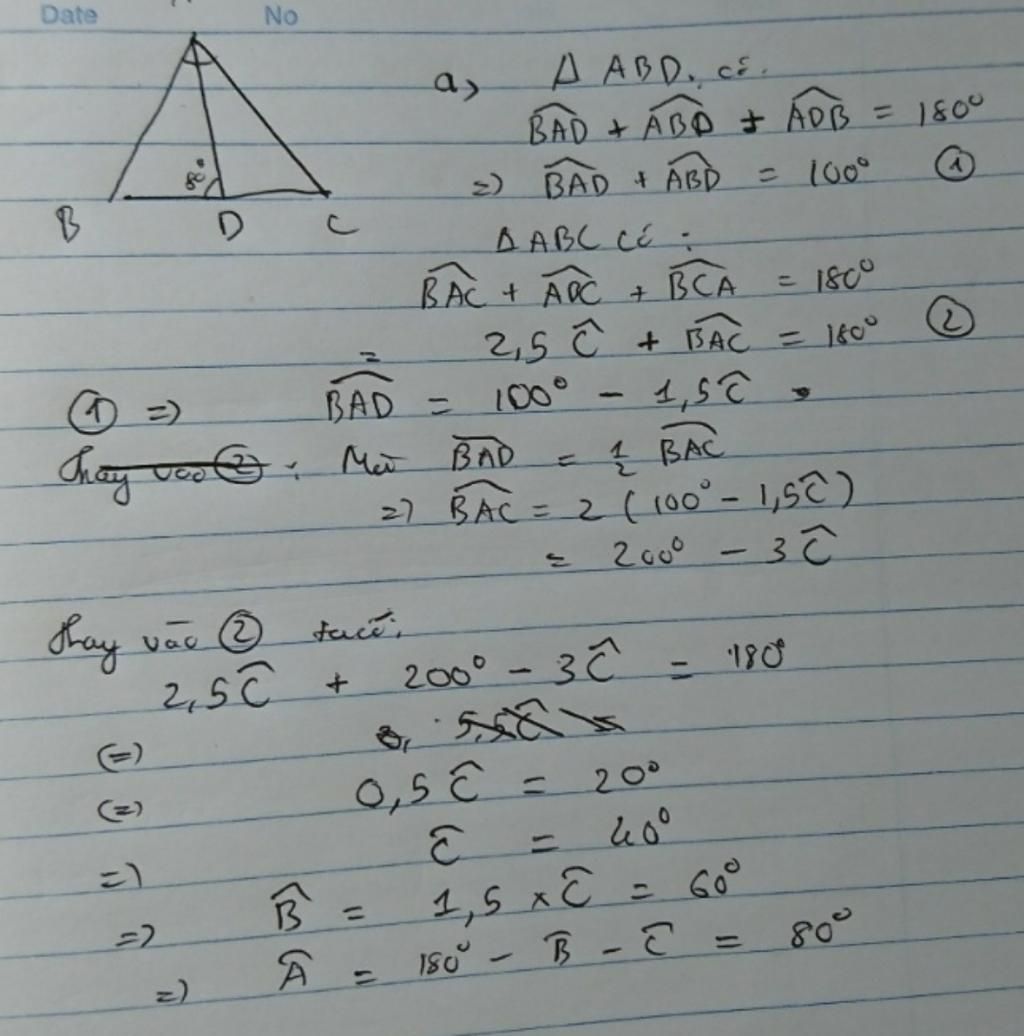 Date No
80°
B D C
a, Δ ABD. có.
\widehat{BAD} + \widehat{ABD} + \widehat{ADB} = 180°
=) \widehat{BAD} + \widehat{ABD} = 100° ①
Δ ABC có :
\widehat{BAC} + \widehat{ABC} + \widehat{BCA} = 180°
= 2,5 \widehat{C} + \widehat{BAC} = 180° ②
① =) \widehat{BAD} = 100° - 1,5\widehat{C}
Thay vào ② : Mà \widehat{BAD} = \frac{1}{2} \widehat{BAC}
=) \widehat{BAC} = 2 (100° - 1,5\widehat{C})
= 200° - 3\widehat{C}
Thay vào ② ta có:
2,5\widehat{C} + 200° - 3\widehat{C} = 180°
(=)
(=) 0,5\widehat{C} = 20°
=) \widehat{C} = 40°
=) \widehat{B} = 1,5 × \widehat{C} = 60°
=) \widehat{A} = 180° - \widehat{B} - \widehat{C} = 80°